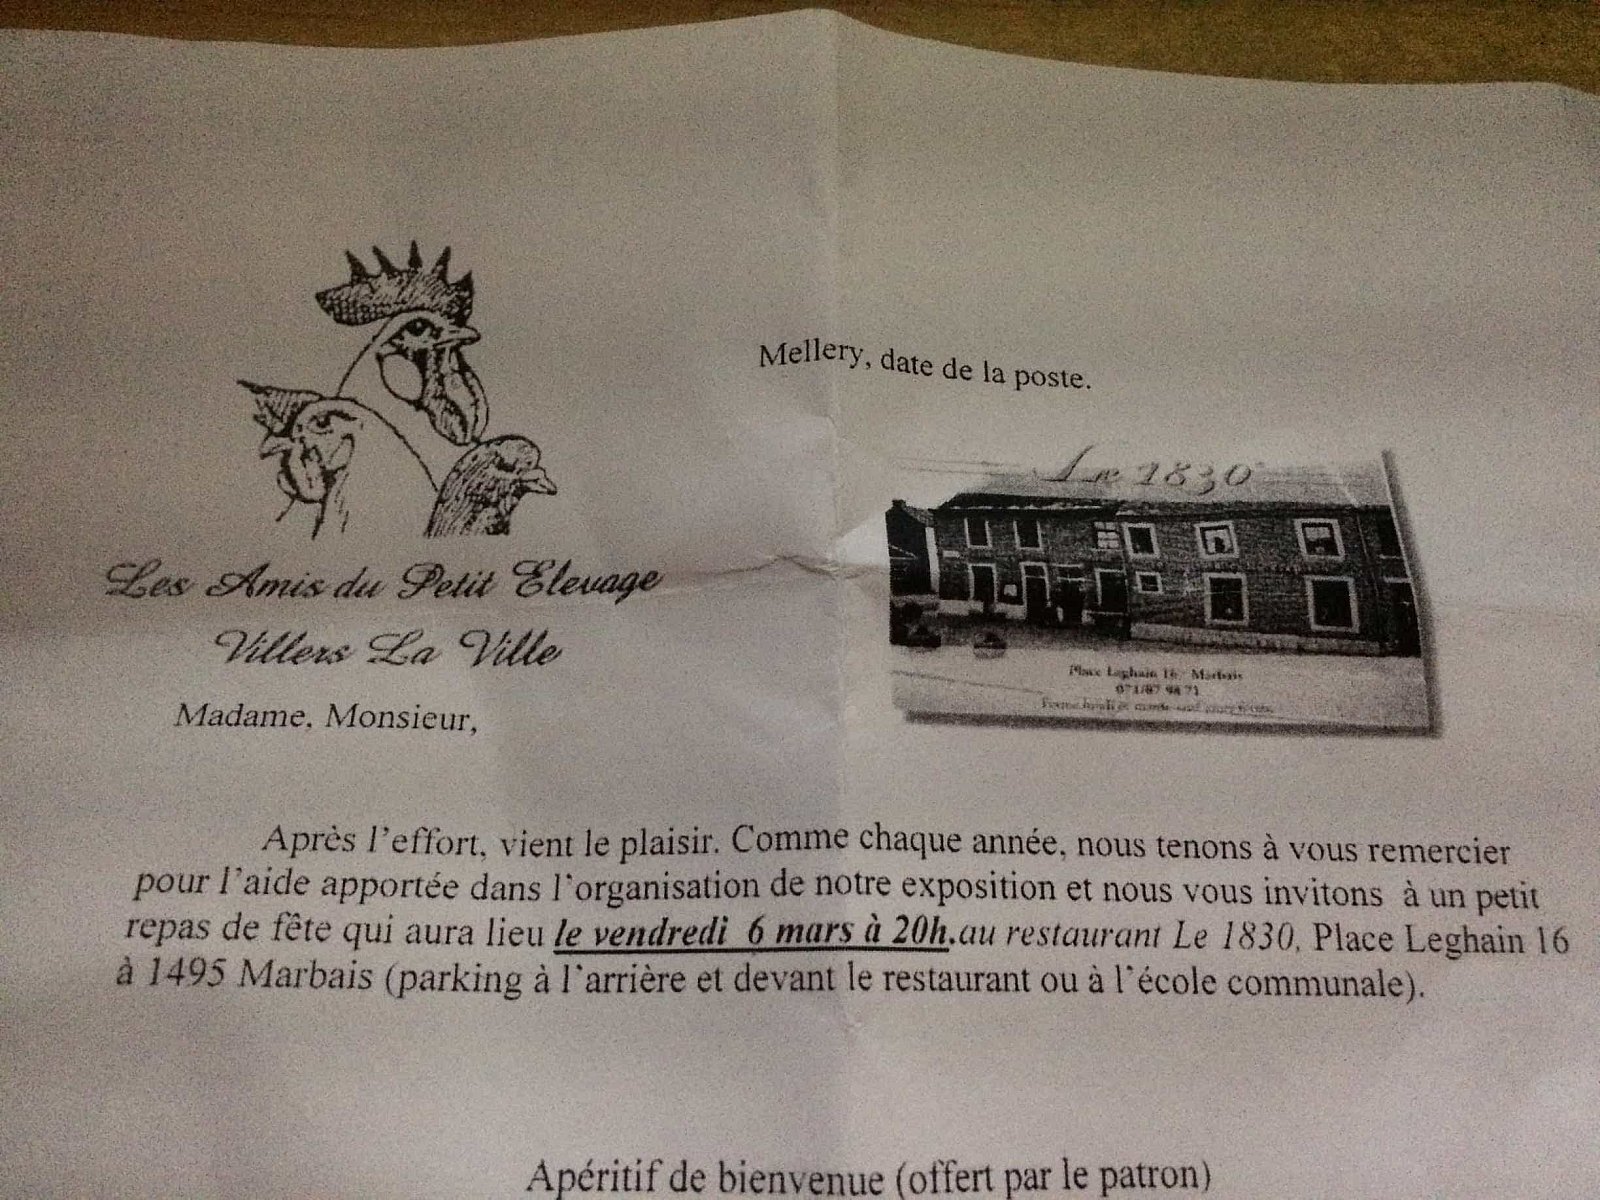 Mellery, date de la poste.
Le 1830
Les Amis du Petit Elevage
Villers La Ville
Place Leghain 16 Marbais
071/87 98 71
Madame, Monsieur,
Après l'effort, vient le plaisir. Comme chaque année, nous tenons à vous remercier
pour l'aide apportée dans l'organisation de notre exposition et nous vous invitons à un petit
repas de fête qui aura lieu le vendredi 6 mars à 20h.au restaurant Le 1830, Place Leghain 16
à 1495 Marbais (parking à l'arrière et devant le restaurant ou à l'école communale).
Apéritif de bienvenue (offert par le patron)